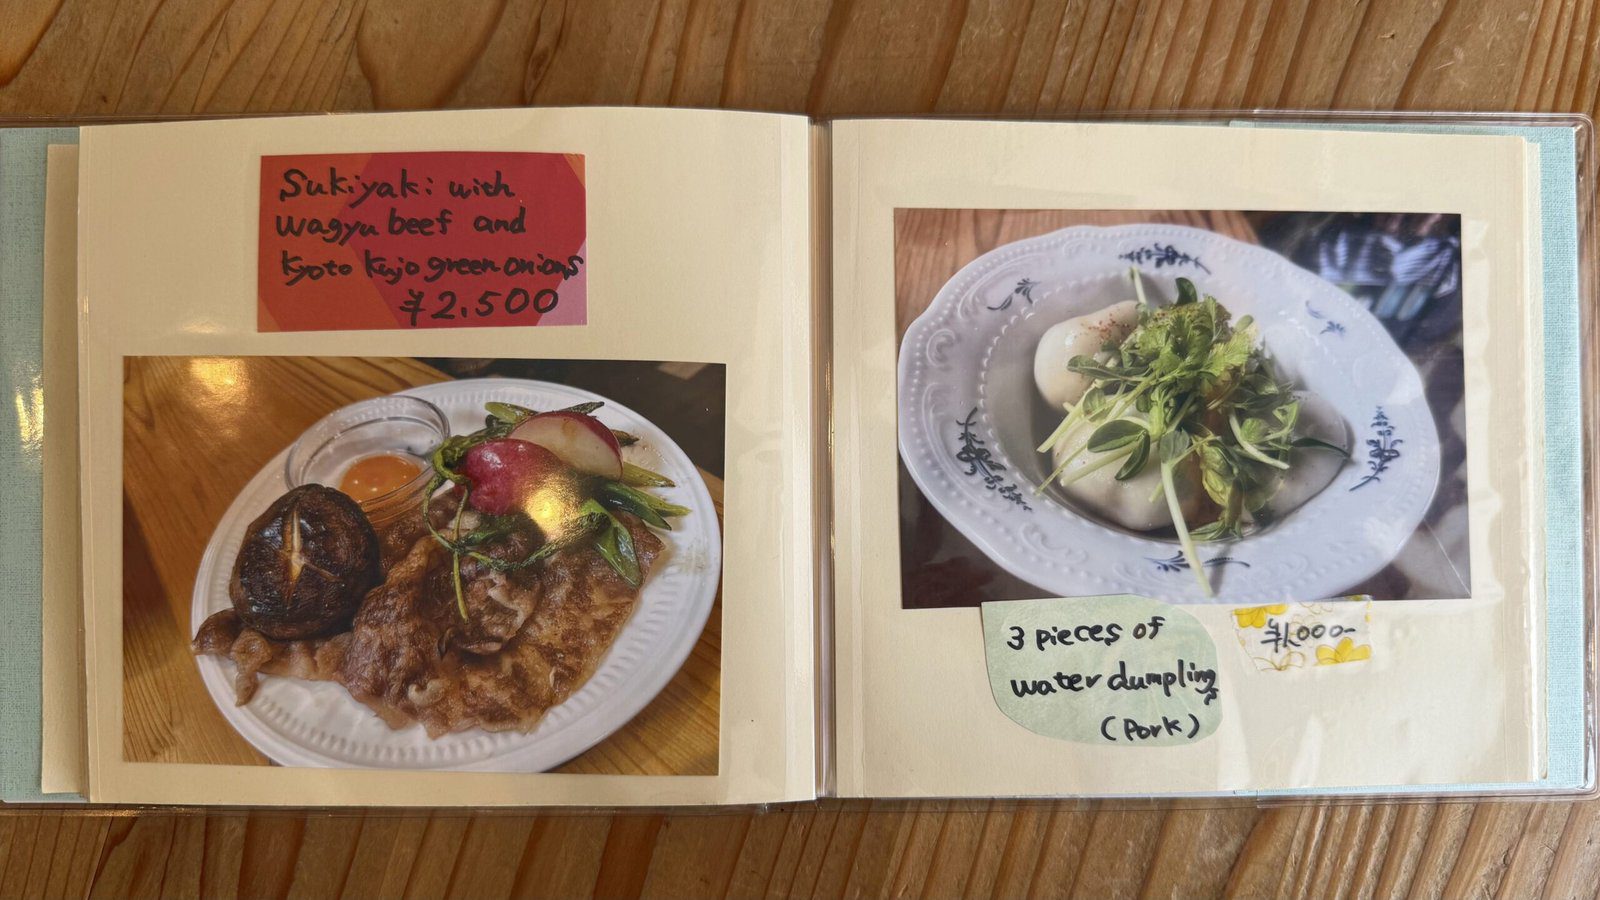 Sukiyaki: with
wagyu beef and
Kyoto Kujo green onions
¥2,500
3 pieces of
water dumplings
(Pork)
¥1,000-